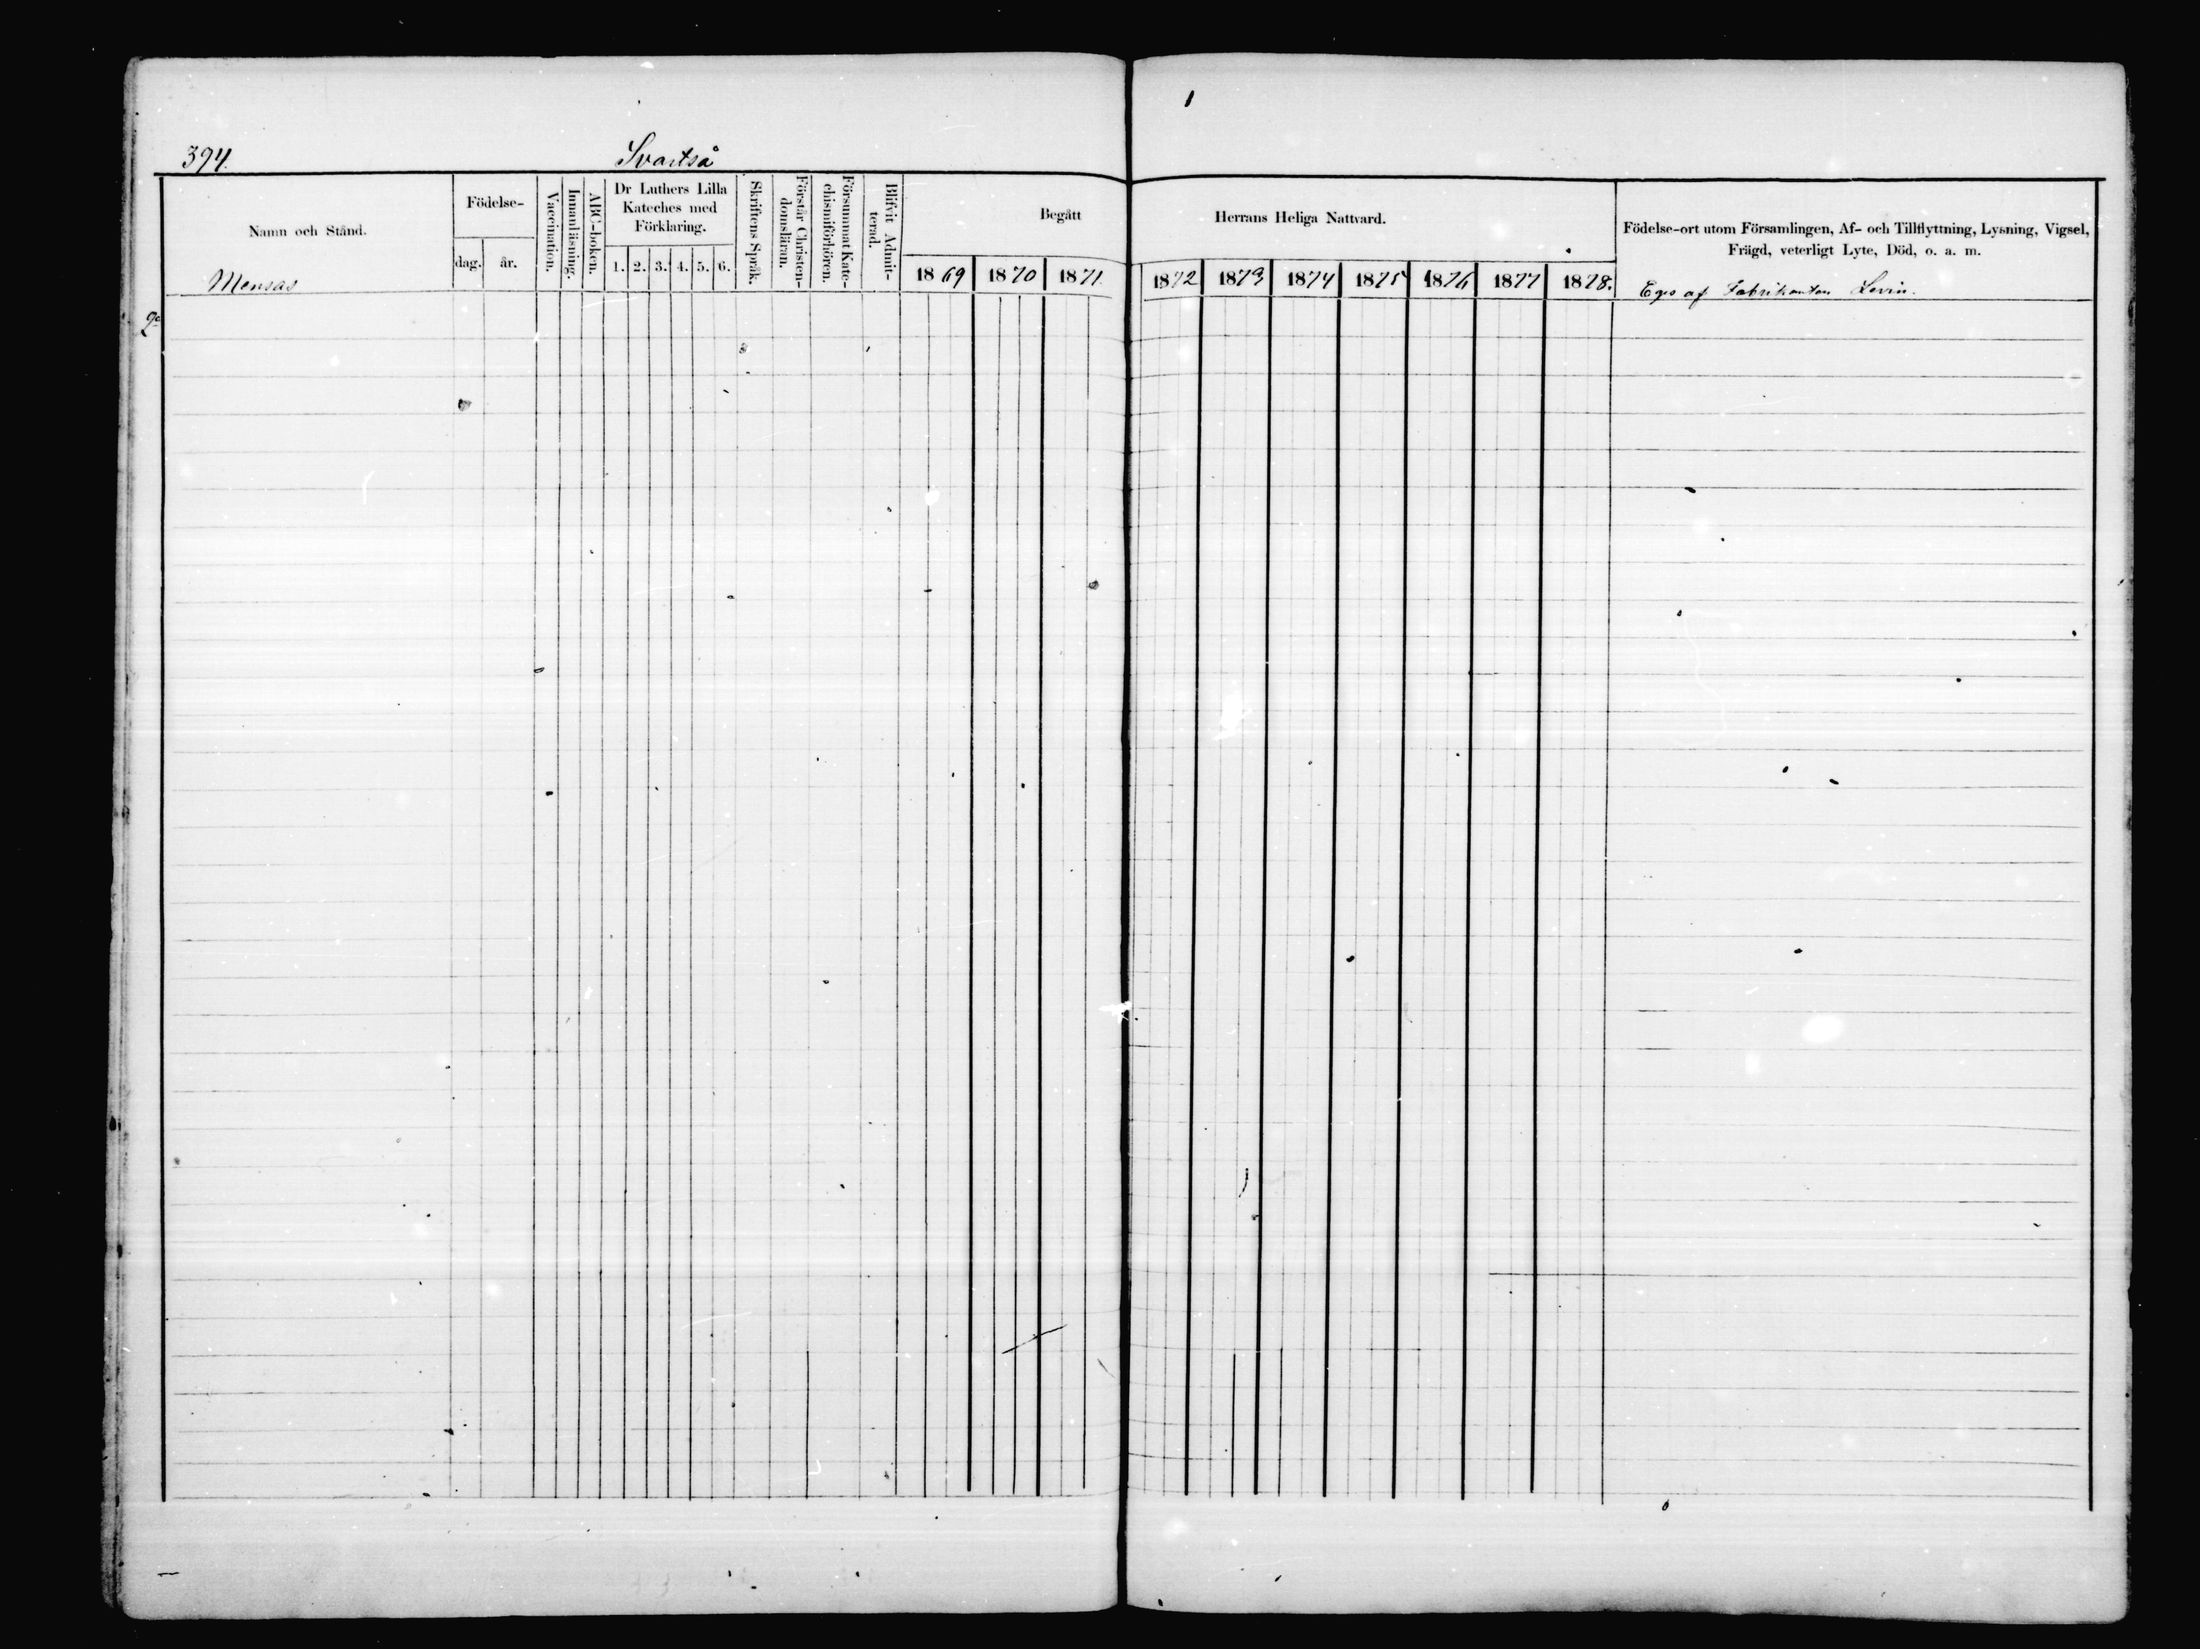 394.
Svartså
Namn och Stånd.
Mensas
Födelse-
dag.
år.
Vaccination.
Innanläsning.
ABC-boken.
Dr Luthers Lilla
Kateches med
Förklaring.
1. 2. 3. 4. 5. 6.
Skriftens Språk.
Förstår Christen-
domsläran.
Försummat Kate-
chismiförhören.
Blifvit Admit-
terad.
Begått
Herrans Heliga Nattvard.
1869 1870 1871. 1872 1873 1874 1875 1876 1877 1878.
Födelse-ort utom Församlingen, Af- och Tillflyttning, Lysning, Vigsel,
Frägd, veterligt Lyte, Död, o. a. m.
Eges af Fabrikanten Levin.